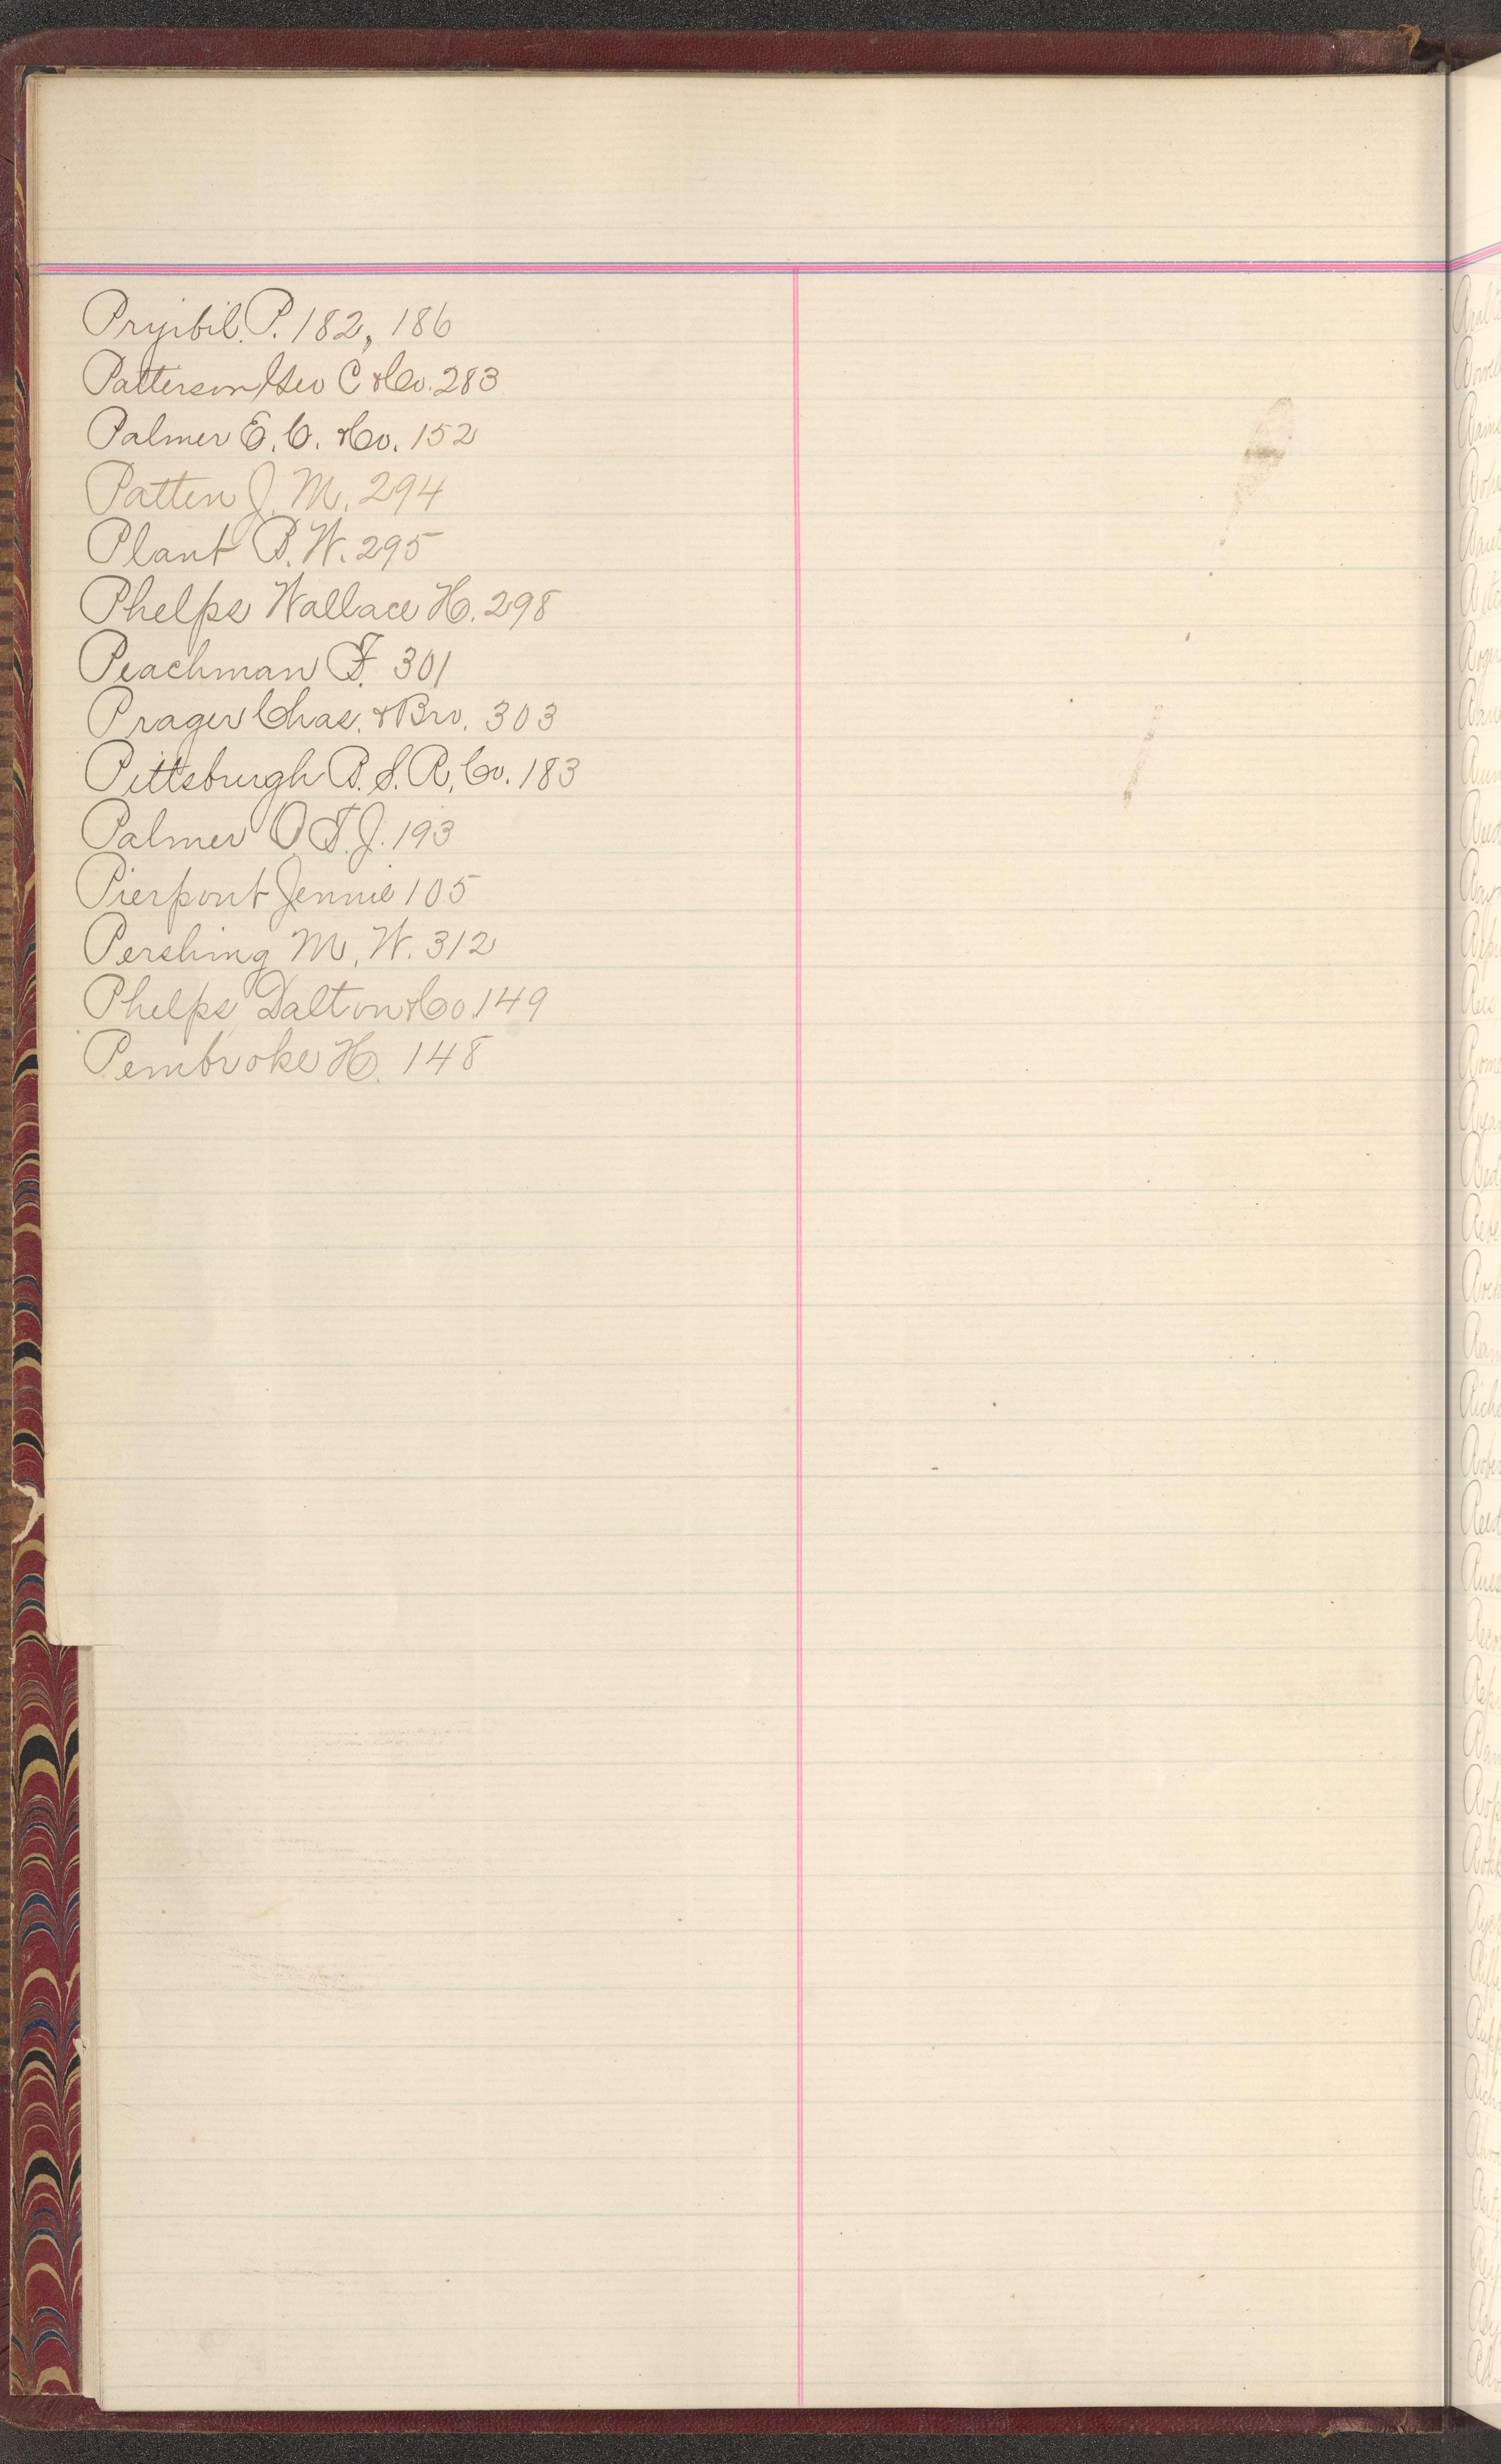 Pryibil. P. 182, 186
Patterson Geo C & Co. 283
Palmer E. C. & Co. 152
Patten J. M. 294
Plant B. W. 295
Phelps Wallace H. 298
Peachman F. 301
Prager Chas. & Bro. 303
Pittsburgh B. S. R. Co. 183
Palmer O. T. J. 193
Pierpont Jennie 105
Pershing M. W. 312
Phelps Dalton & Co. 149
Pembroke H. 148